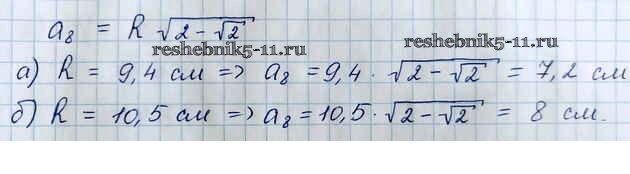 a₈ = R √(2 − √2)
reshebnik5-11.ru reshebnik5-11.ru
а) R = 9,4 см => a₈ = 9,4 · √(2 − √2) = 7,2 см
б) R = 10,5 см => a₈ = 10,5 · √(2 − √2) = 8 см.